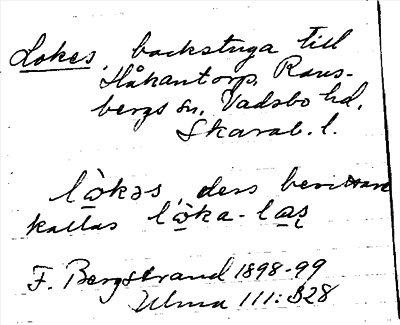 Lokes, backstuga till
Håkantorp, Rans-
bergs sn, Vadsbo hd,
Skarab. l.
lò̠kəs, dess
kallas lò̠ka-la̠s̨
F. Bergstrand 1898-99
Ulma 111:328